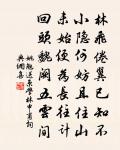 林飛倦翼已知不
小隱何妨且住山
未始便為長往計
回頭魏闕五雲間
姚勉送學林中有詞